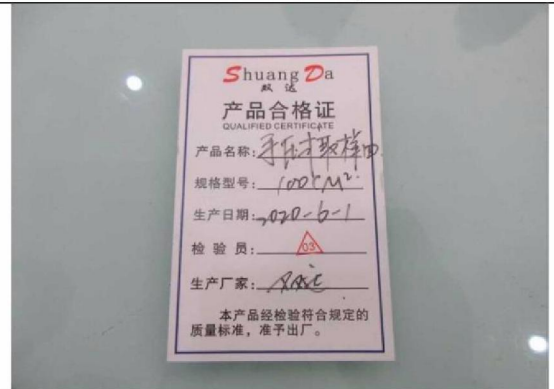 Shuang Da
双达
产品合格证
QUALIFIED CERTIFICATE
产品名称：手压式取样四
规格型号：100CM²
生产日期：2020-6-1
检 验 员：03
生产厂家：双达
本产品经检验符合规定的
质量标准，准予出厂。